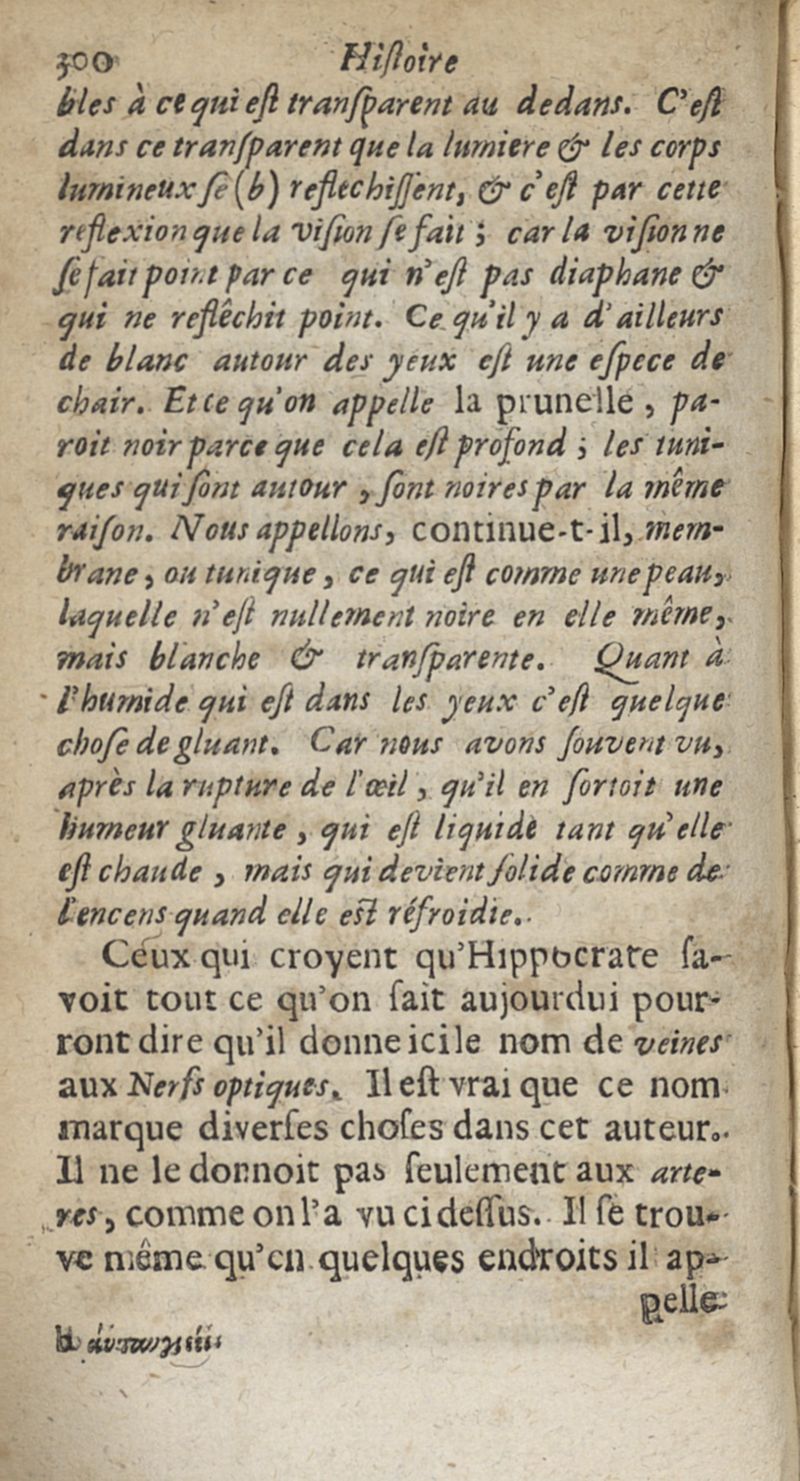 300 Hiſtoire
bles à ce qui eſt tranſparent au dedans. C'eſt
dans ce tranſparent que la lumiere & les corps
lumineux ſe (b) reflechiſſent, & c'eſt par cette
reflexion que la viſion ſe fait ; car la viſion ne
ſe fait point par ce qui n'eſt pas diaphane &
qui ne reflêchit point. Ce qu'il y a d'ailleurs
de blanc autour des yeux eſt une eſpece de
chair. Et ce qu'on appelle la prunelle, pa-
roit noir parce que cela eſt profond ; les tuni-
ques qui ſont autour, ſont noires par la même
raiſon. Nous appellons, continue-t-il, mem-
brane, ou tunique, ce qui eſt comme une peau,
laquelle n'eſt nullement noire en elle même,
mais blanche & tranſparente. Quant à
l'humide qui eſt dans les yeux c'eſt quelque
choſe de gluant. Car nous avons ſouvent vu,
après la rupture de l'œil, qu'il en ſortoit une
humeur gluante, qui eſt liquide tant qu'elle
eſt chaude, mais qui devient ſolide comme de
l'encens quand elle eſt réfroidie.
Ceux qui croyent qu'Hippocrate ſa-
voit tout ce qu'on ſait aujourdui pour-
ront dire qu'il donne ici le nom de veines
aux Nerfs optiques. Il eſt vrai que ce nom
marque diverſes choſes dans cet auteur.
Il ne le donnoit pas ſeulement aux arte-
res, comme on l'a vu ci deſſus. Il ſe trou-
ve même qu'en quelques endroits il ap-
pelle